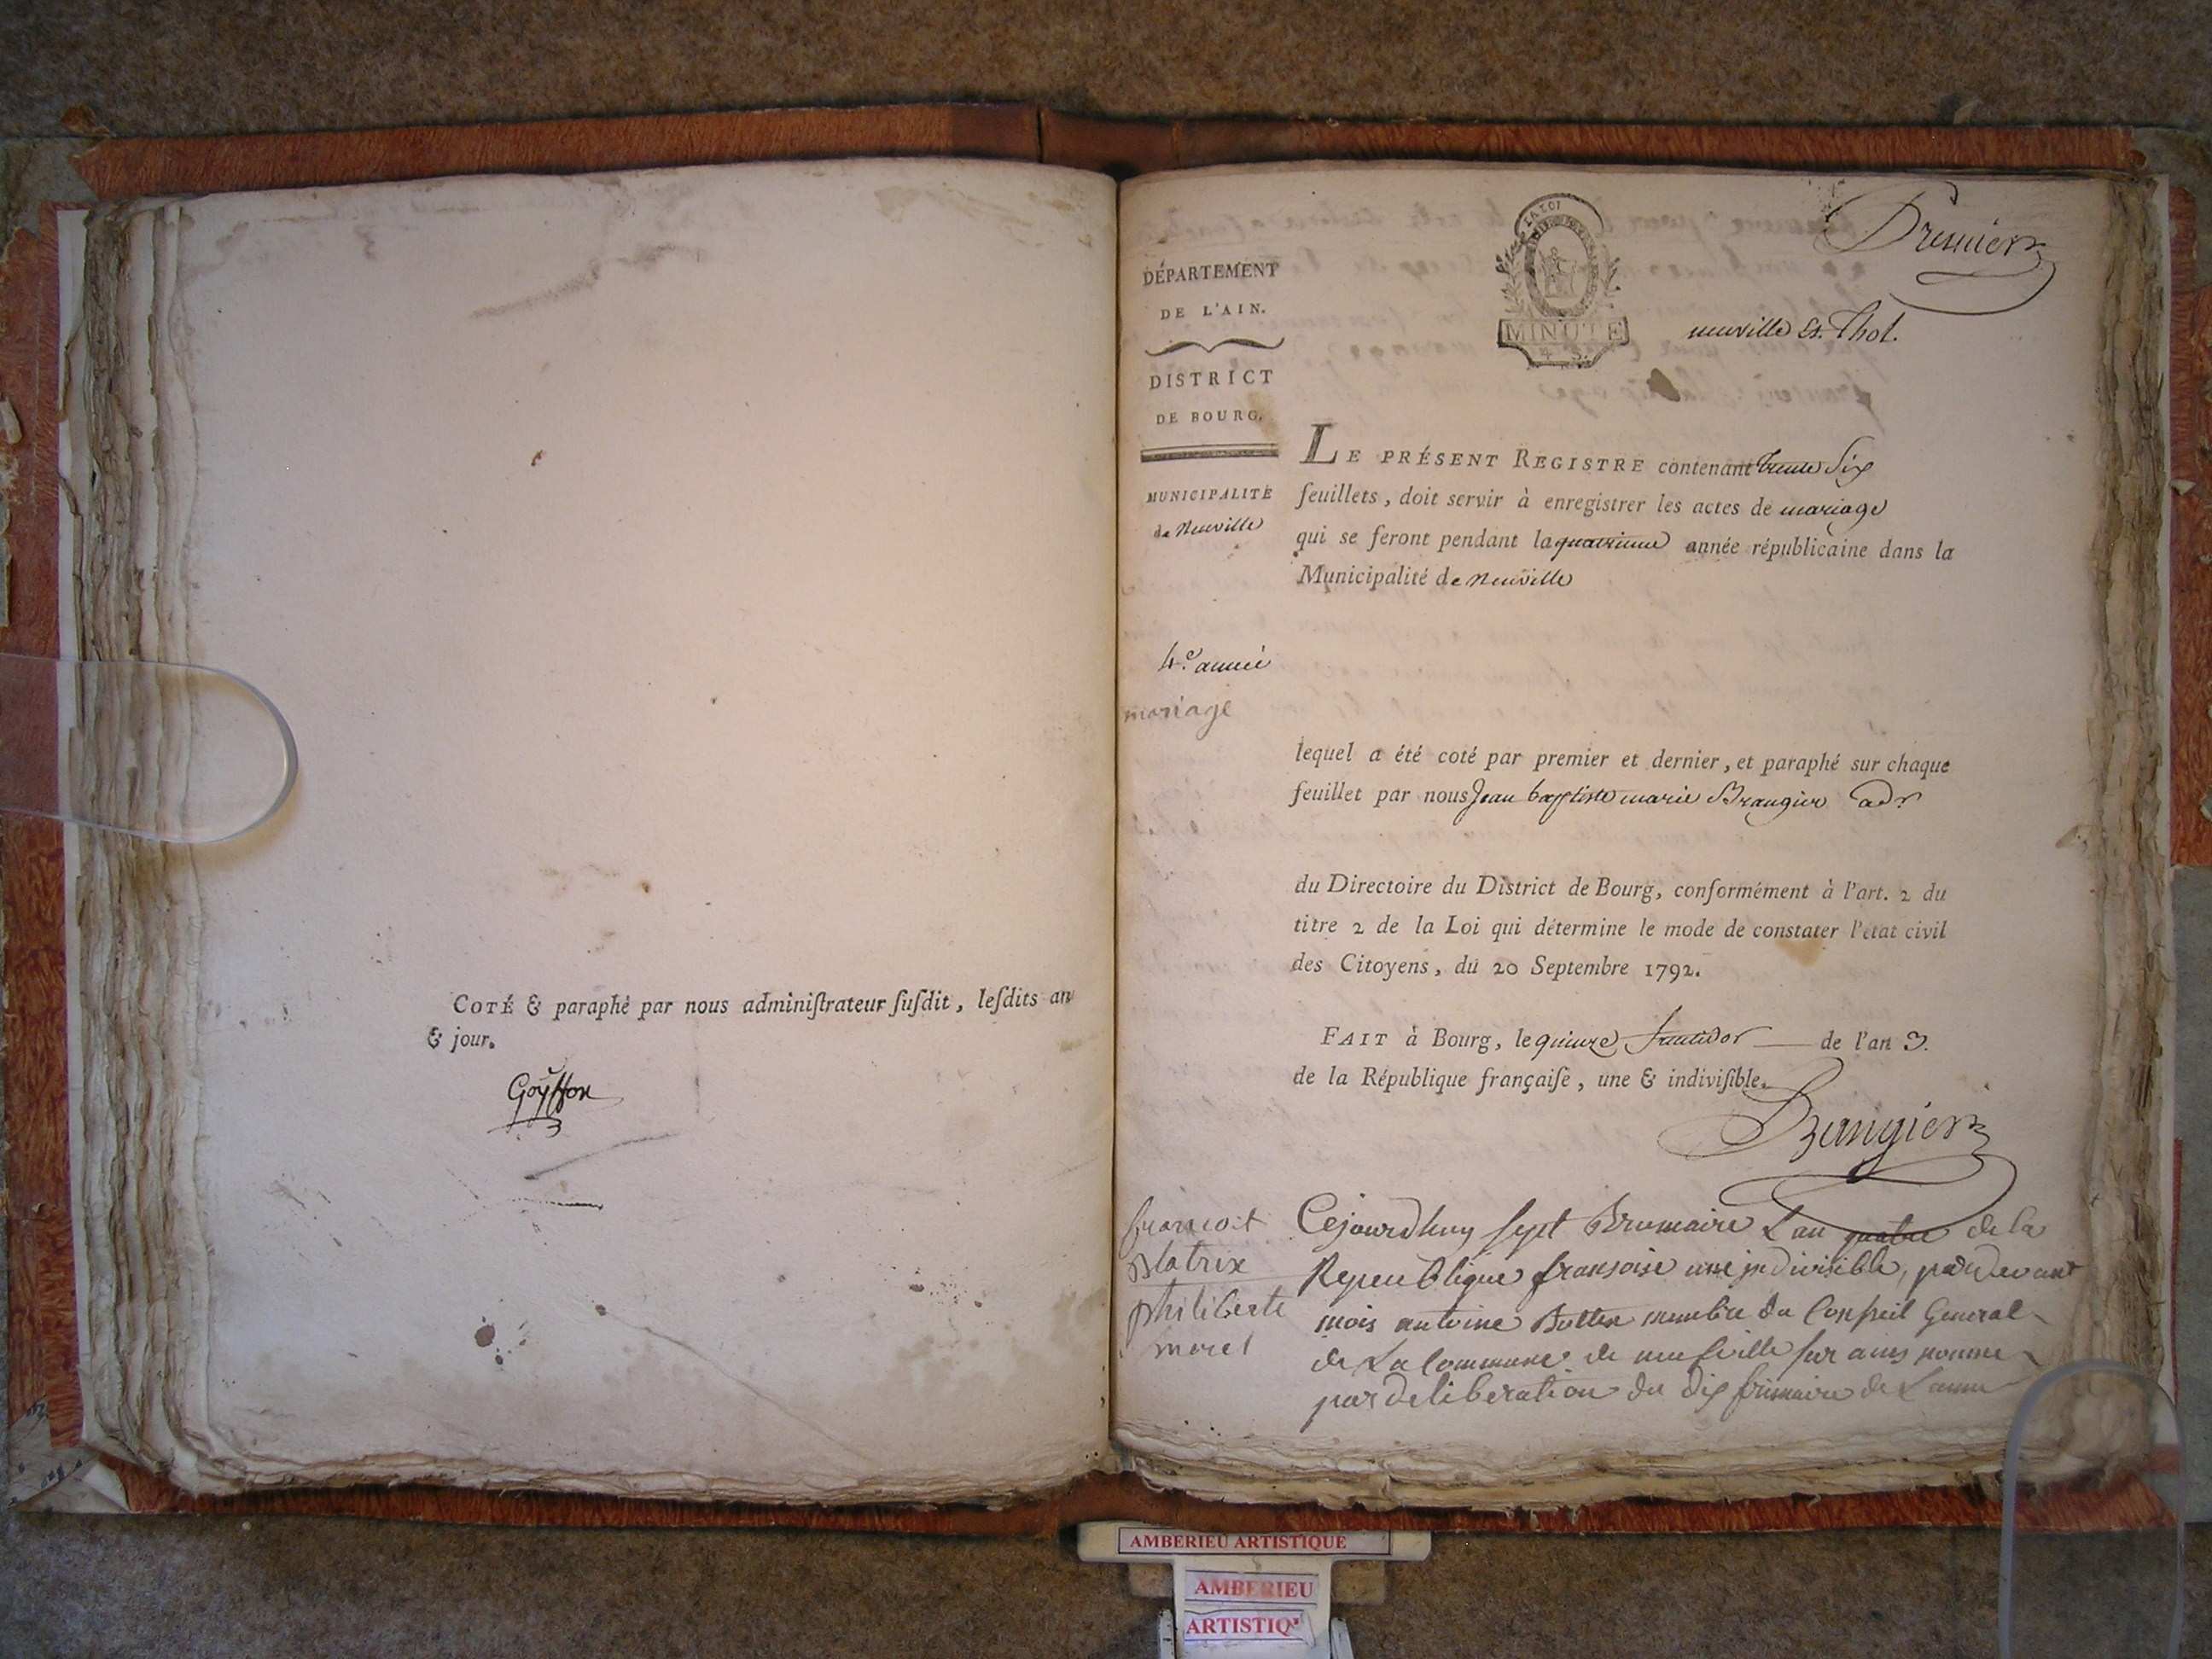 COTÉ & paraphé par nous adminiſtrateur ſuſdit, leſdits an
& jour.
Goyffon
Premier
LA LOI
MINUTE
4 S.
neuville Et. Chol.
DÉPARTEMENT
DE L'AIN.
DISTRICT
DE BOURG.
MUNICIPALITÉ
de Neuville
4.e année
mariage
LE PRÉSENT REGISTRE contenant trente Six
feuillets, doit servir à enregistrer les actes de mariage
qui se feront pendant la quatrieme année républicaine dans la
Municipalité de Neuville
lequel a été coté par premier et dernier, et paraphé sur chaque
feuillet par nous Jean baptiste marie Brangier adr
du Directoire du District de Bourg, conformément à l'art. 2 du
titre 2 de la Loi qui détermine le mode de constater l'état civil
des Citoyens, du 20 Septembre 1792.
FAIT à Bourg, le quinze fructidor de l'an 3.
de la République françaiſe, une & indiviſible.
Brangier
francoit
Blatrix
philiberte
morel
Cejourdhuy sept Brumaire L an quatre de la
Repeublique fransoise une indivisible, pardevant
mois antoine Bottex membre du Conseil General
de La Commune de neufville sur ains nomme
par deliberation du dix frimaire de Lanne
AMBERIEU ARTISTIQUE
AMBERIEU
ARTISTIQ